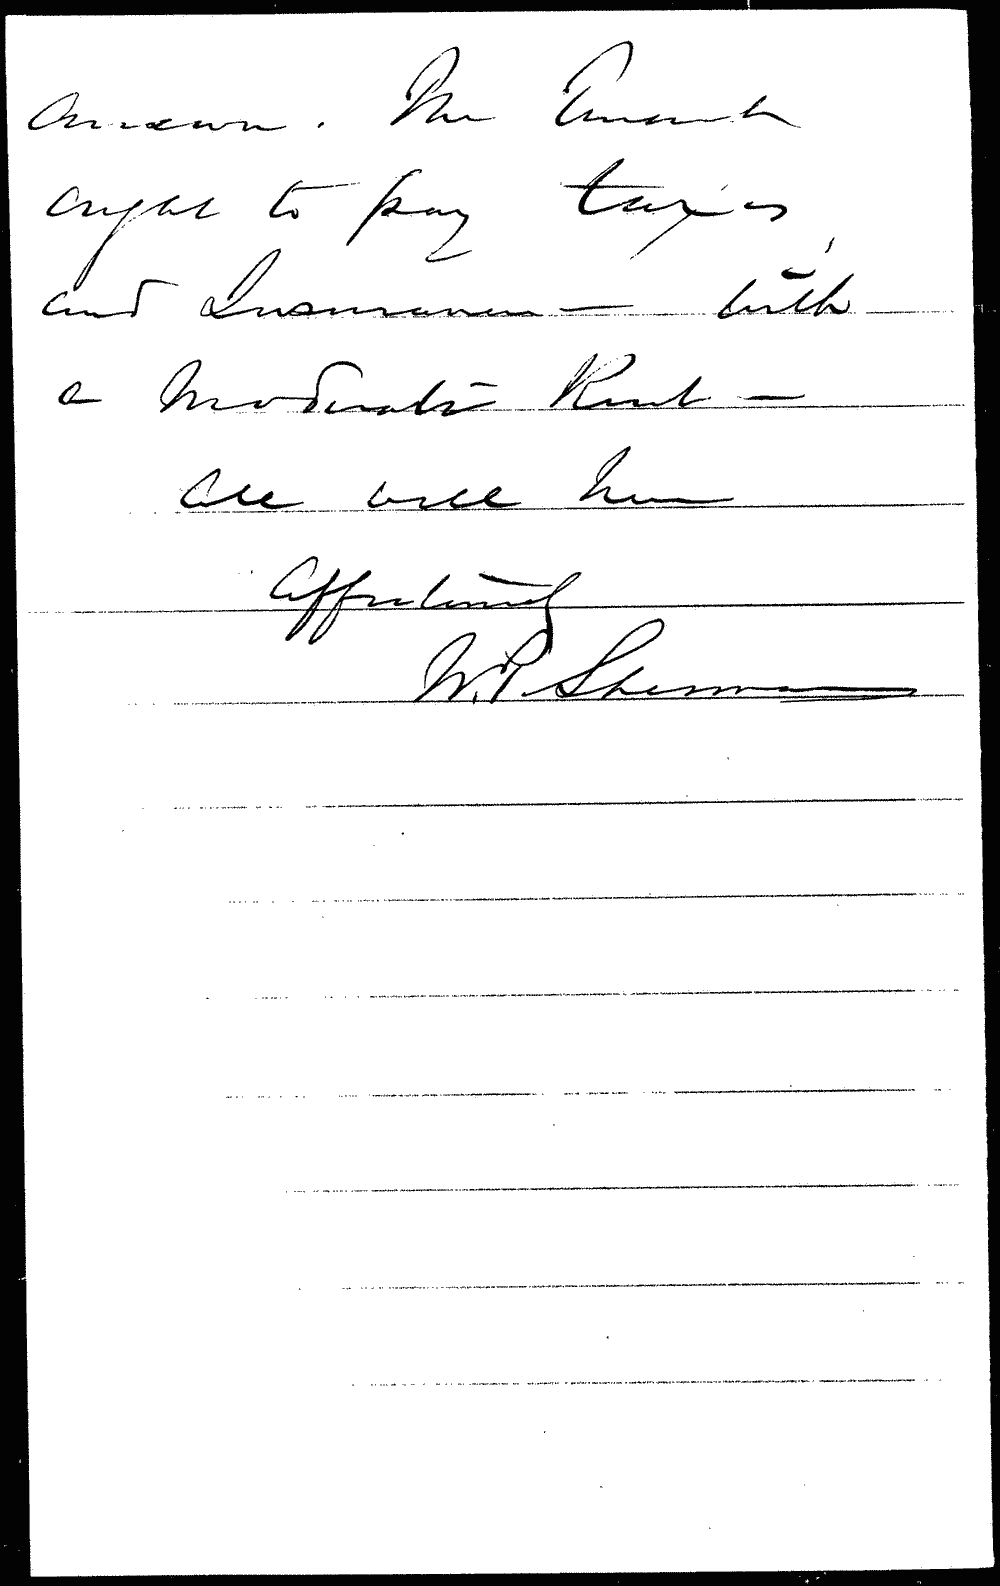 The Tenant
ought to pay taxes,
and Insurance — with
a moderate Rent —
All well here
Affectionately
W. T. Sherman